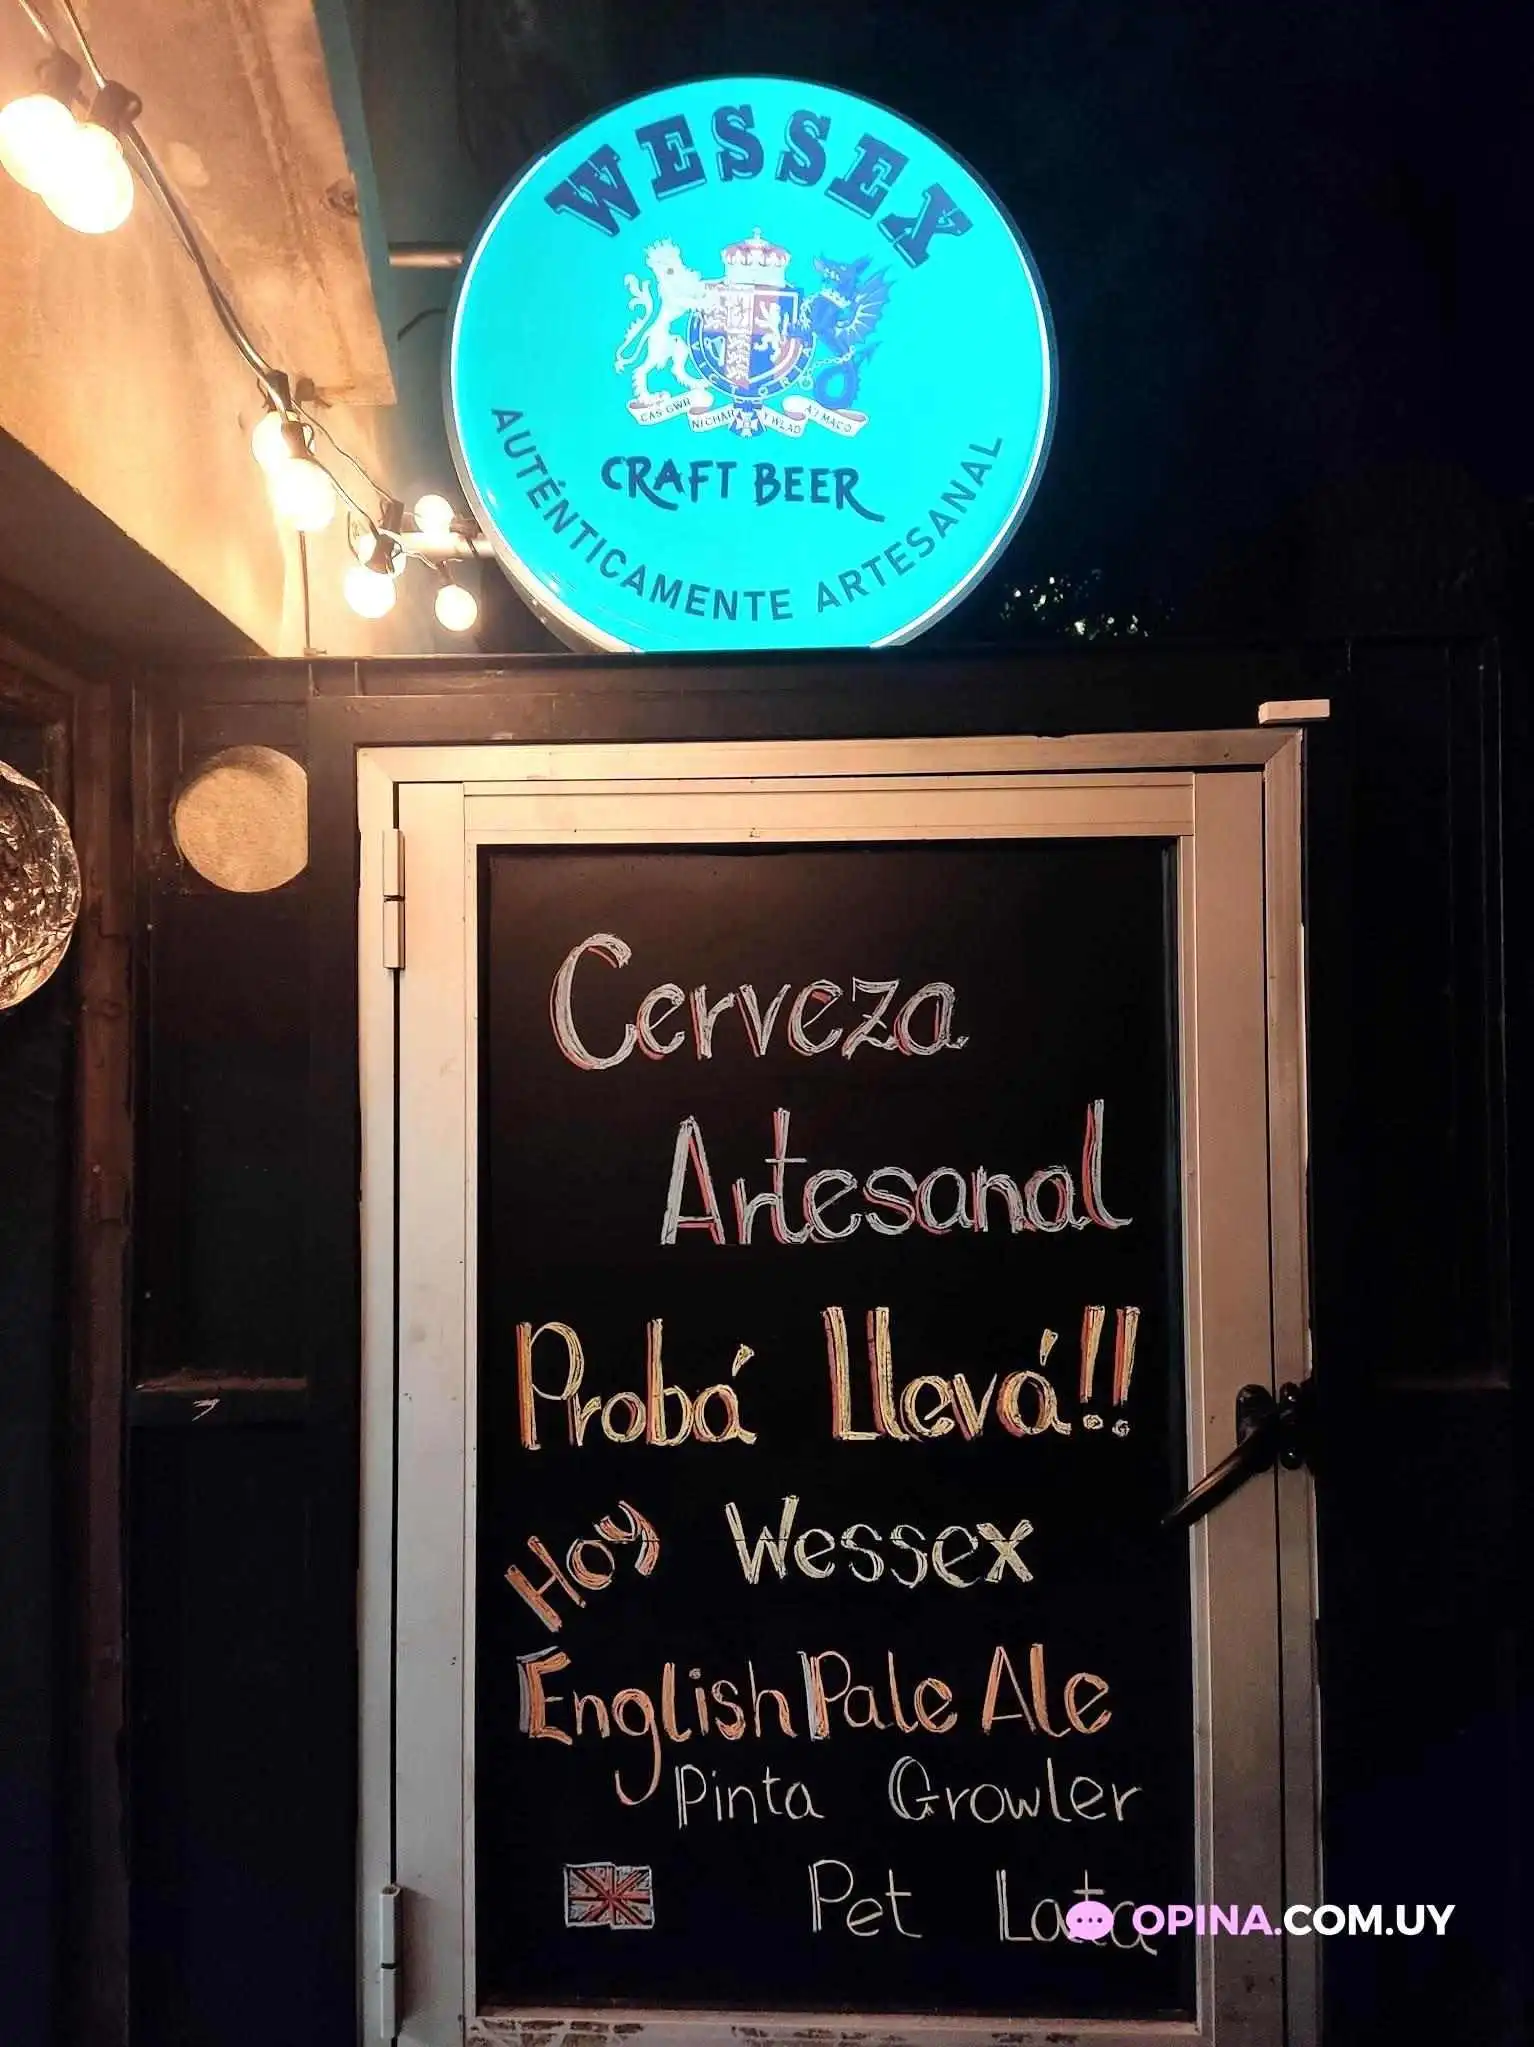 WESSEX
VICTORIA
CAS GWR
NI CHAR
Y WLAD
A'I MACO
CRAFT BEER
AUTÉNTICAMENTE ARTESANAL
Cerveza
Artesanal
Probá Llevá!!
Hoy Wessex
English Pale Ale
Pinta Growler
Pet Lata
OPINA.COM.UY